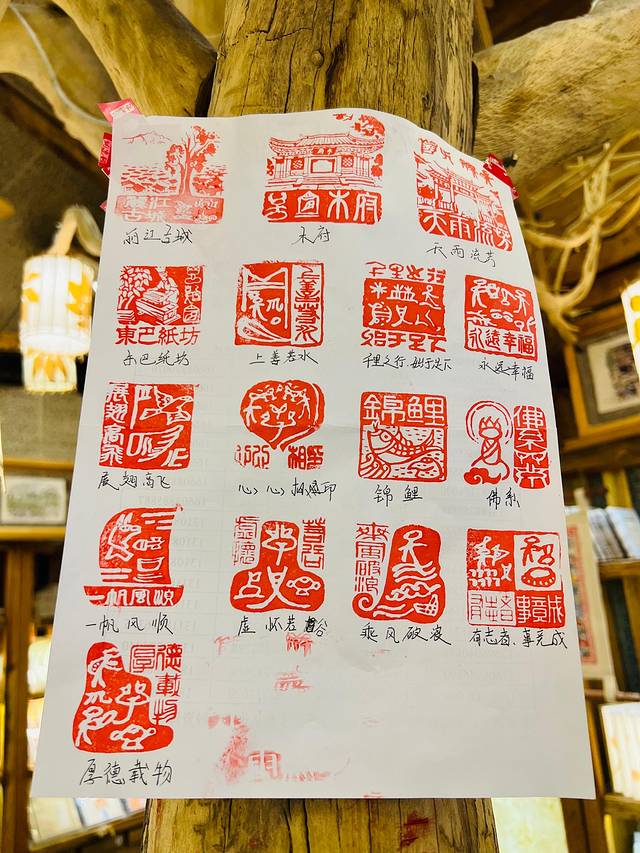 天雨流芳
丽江古城
木府
天雨流芳
東巴紙坊
始于足下
永遠幸福
东巴纸坊
上善若水
千里之行、始于足下
永远幸福
展翅高飛
錦鯉
展翅高飞
心心相印
锦鲤
佛系
一帆風順
一帆风顺
虚怀若谷
乘风破浪
有志者、事竟成
厚德載物
厚德载物